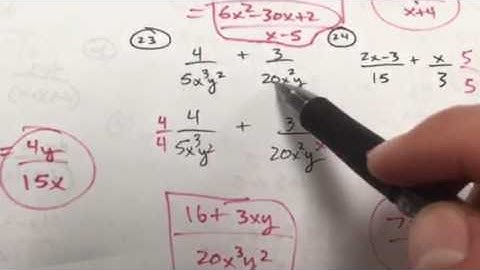 = 6x² - 30x + 2 / x - 5
x + 4
23 4 / 5x³y² + 3 / 20x²y
24 2x - 3 / 15 + x / 3 5 / 5
4 / 4 4 / 5x³y² + 3 / 20x²y x
= 4y / 15x
16 + 3xy / 20x³y²